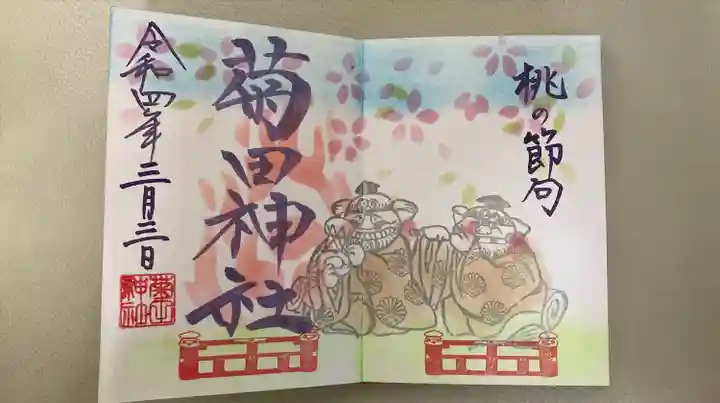 桃の節句
菊田神社
令和四年三月三日
菊田
神社